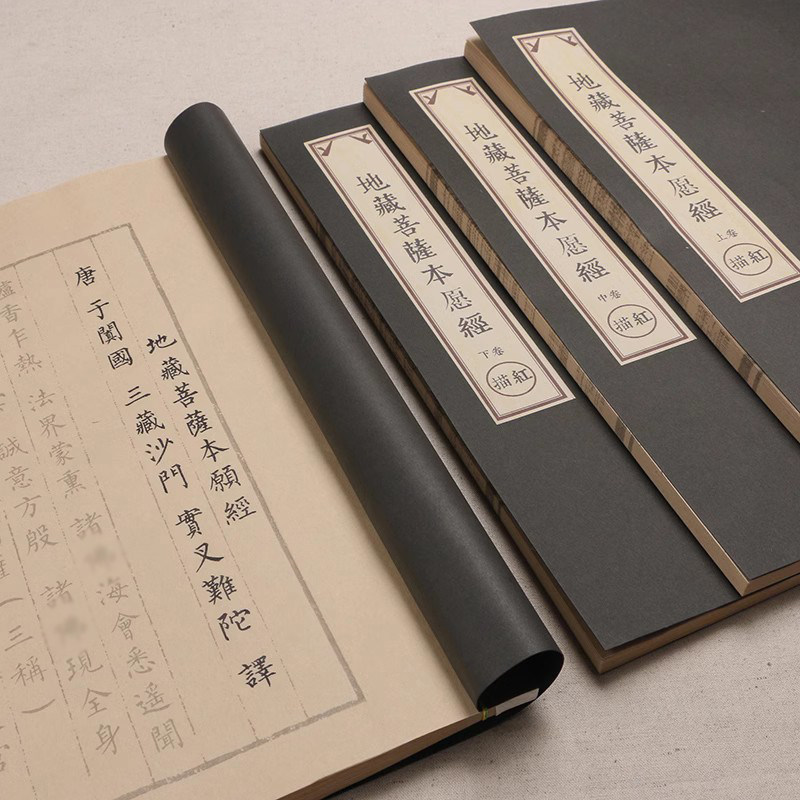 地藏菩薩本愿經
上卷
描紅
地藏菩薩本愿經
中卷
描紅
地藏菩薩本愿經
下卷
描紅
地藏菩薩本願經
唐 于闐國 三藏沙門 實叉難陀 譯
爐香乍熱 法界蒙熏 諸 海會悉遙聞
誠意方殷 諸 現全身
（三稱）